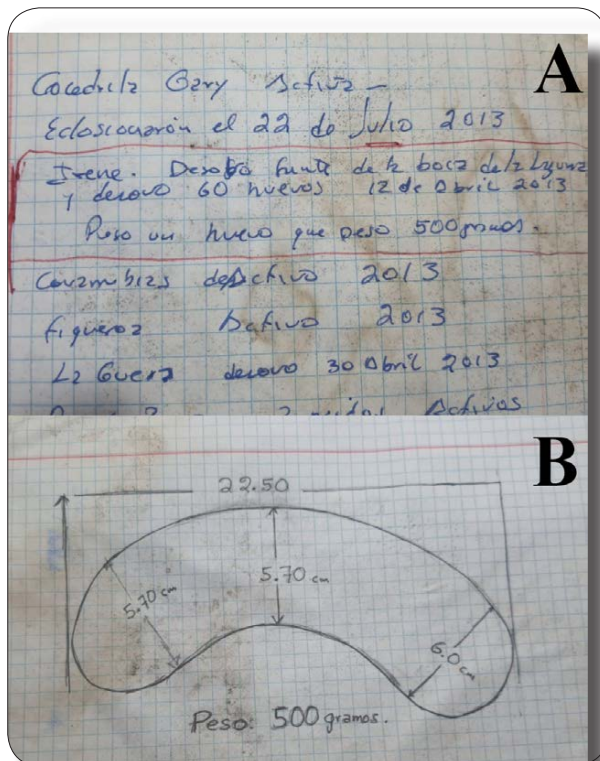 A
Cocodrila Gary Activa -
Eclosionarón el 22 de Julio 2013
Irene. Desobo frente de la boca de la Laguna
y desovo 60 huevos 12 de Abril 2013
Puso un huevo que peso 500 gramos.
2013
Figueroa Activo 2013
La Guera desovo 30 Abril 2013
nidos Activos
B
22.50
5.70 cm
5.70 cm
6.0 cm
Peso: 500 gramos.